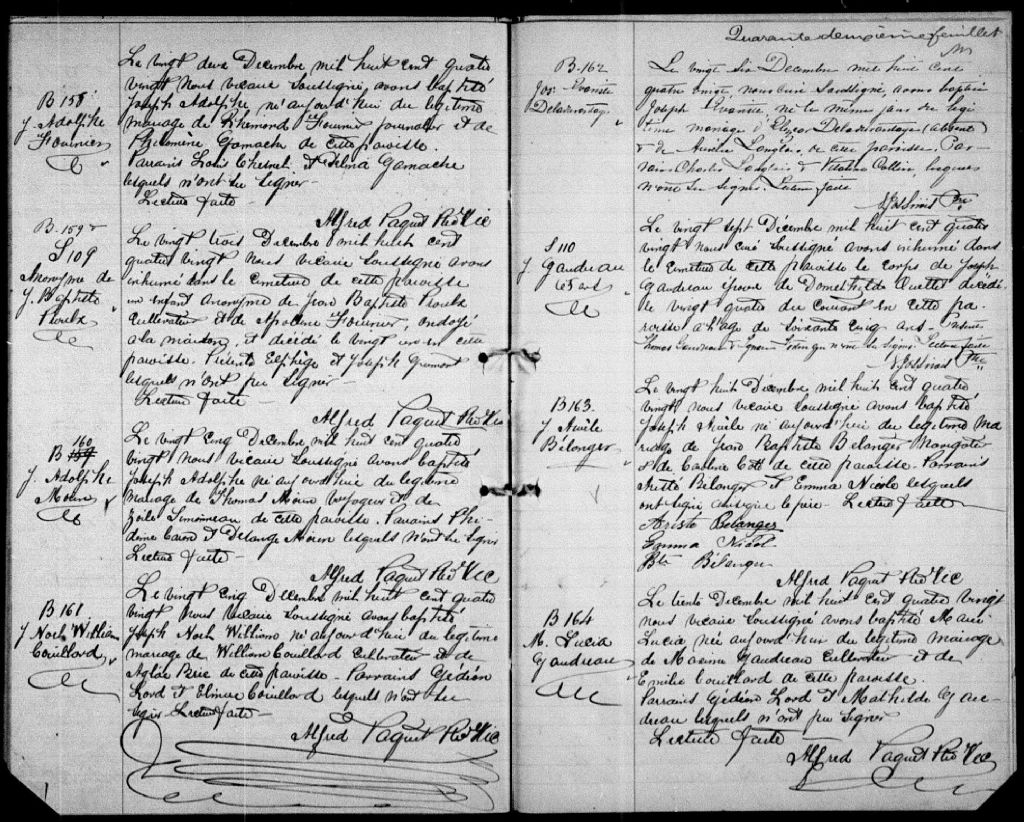 B 158
J. Adolphe
Fournier
Le vingt deux Decembre mil huit cent quatre
vingt Nous vicaire soussigné, avons baptisé
Joseph Adolphe né aujourd'hui du legitime
mariage de Fournier journalier et de
Philomène Gamache de cette paroisse.
Parrains Louis et Gamache
lesquels n'ont su signer
Lecture faite
Alfred Paquet Ptre Vic
B. 159
S 109
Anonyme de
J. Baptiste
Proulx
Le vingt trois Decembre mil huit cent
quatre vingt Nous vicaire soussigné avons
inhumé dans le cimetière de cette paroisse
un enfant Anonyme de Jean Baptiste Proulx
Cultivateur et de Apoline Fournier, ondoyé
a la maison, et décédé le vingt en cette
paroisse. Présents Elphège et Joseph
lesquels n'ont pu signer
Lecture faite
Alfred Paquet Ptre Vic
160
B 159
J. Adolphe
Morin
Le vingt cinq Decembre mil huit cent quatre
vingt Nous vicaire soussigné avons baptisé
Joseph Adolphe né aujourd'hui du legitime
mariage de Thomas Morin et de
Zoile Simoneau de cette paroisse. Parrains
Caron et Delange Morin lesquels n'ont su signer
Lecture faite
Alfred Paquet Ptre Vic
B 161
J Noel William
Couillard
Le vingt cinq Decembre mil huit cent quatre
vingt Nous vicaire soussigné avons baptisé
Joseph Noel William né aujourd'hui du legitime
mariage de William Couillard Cultivateur et de
Aglaé de cette paroisse. Parrains Gédéon
Lord et Couillard lesquels n'ont su
signer. Lecture faite
Alfred Paquet Ptre Vic
Quarante deuxième feuillet
B. 162
Jos. Evariste
Le vingt six Decembre mil huit cent
quatre vingt, nous curé soussigné, avons baptisé
Joseph Evariste, né le même jour du légi
time mariage d' (absent)
& de Aurélie Langlois de cette paroisse. Par-
rain Charles Langlois & lesquels
n'ont su signer. Lecture faite
Ptre
S 110
J. Gaudreau
65 ans
Le vingt sept Décembre mil huit cent quatre
vingt nous curé soussigné avons inhumé dans
le cimetière de cette paroisse le corps de Joseph
Gaudreau époux de Domethilde Ouellet décédé
le vingt quatre du courant en cette pa-
roisse à l'age de soixante cinq ans. Présents
Thomas Gaudreau & qui n'ont su signer. Lecture faite
Ptre
B 163.
J
Bélanger
Le vingt huit Décembre mil huit cent quatre
vingt nous vicaire soussigné avons baptisé
Joseph né aujourd'hui du legitime Ma
riage de Jean Baptiste Bélanger Navigateur
& de Caroline Côté de cette paroisse. Parrains
Bélanger et Emma Nicole lesquels
ont signé ainsi que le père. Lecture faite
Belanger
Emma Nicol
Bte Bélanger
Alfred Paquet Ptre Vic
B 164
M. Lucia
Gaudreau
Le trente Decembre mil huit cent quatre vingt
nous vicaire soussigné avons baptisé Marie
Lucia née aujourd'hui du legitime mariage
de Maxime Gaudreau Cultivateur et de
Emilie Couillard de cette paroisse.
Parrains Gédéon Lord et Mathilde Gau-
dreau lesquels n'ont pu signer
Lecture faite
Alfred Paquet Ptre Vic